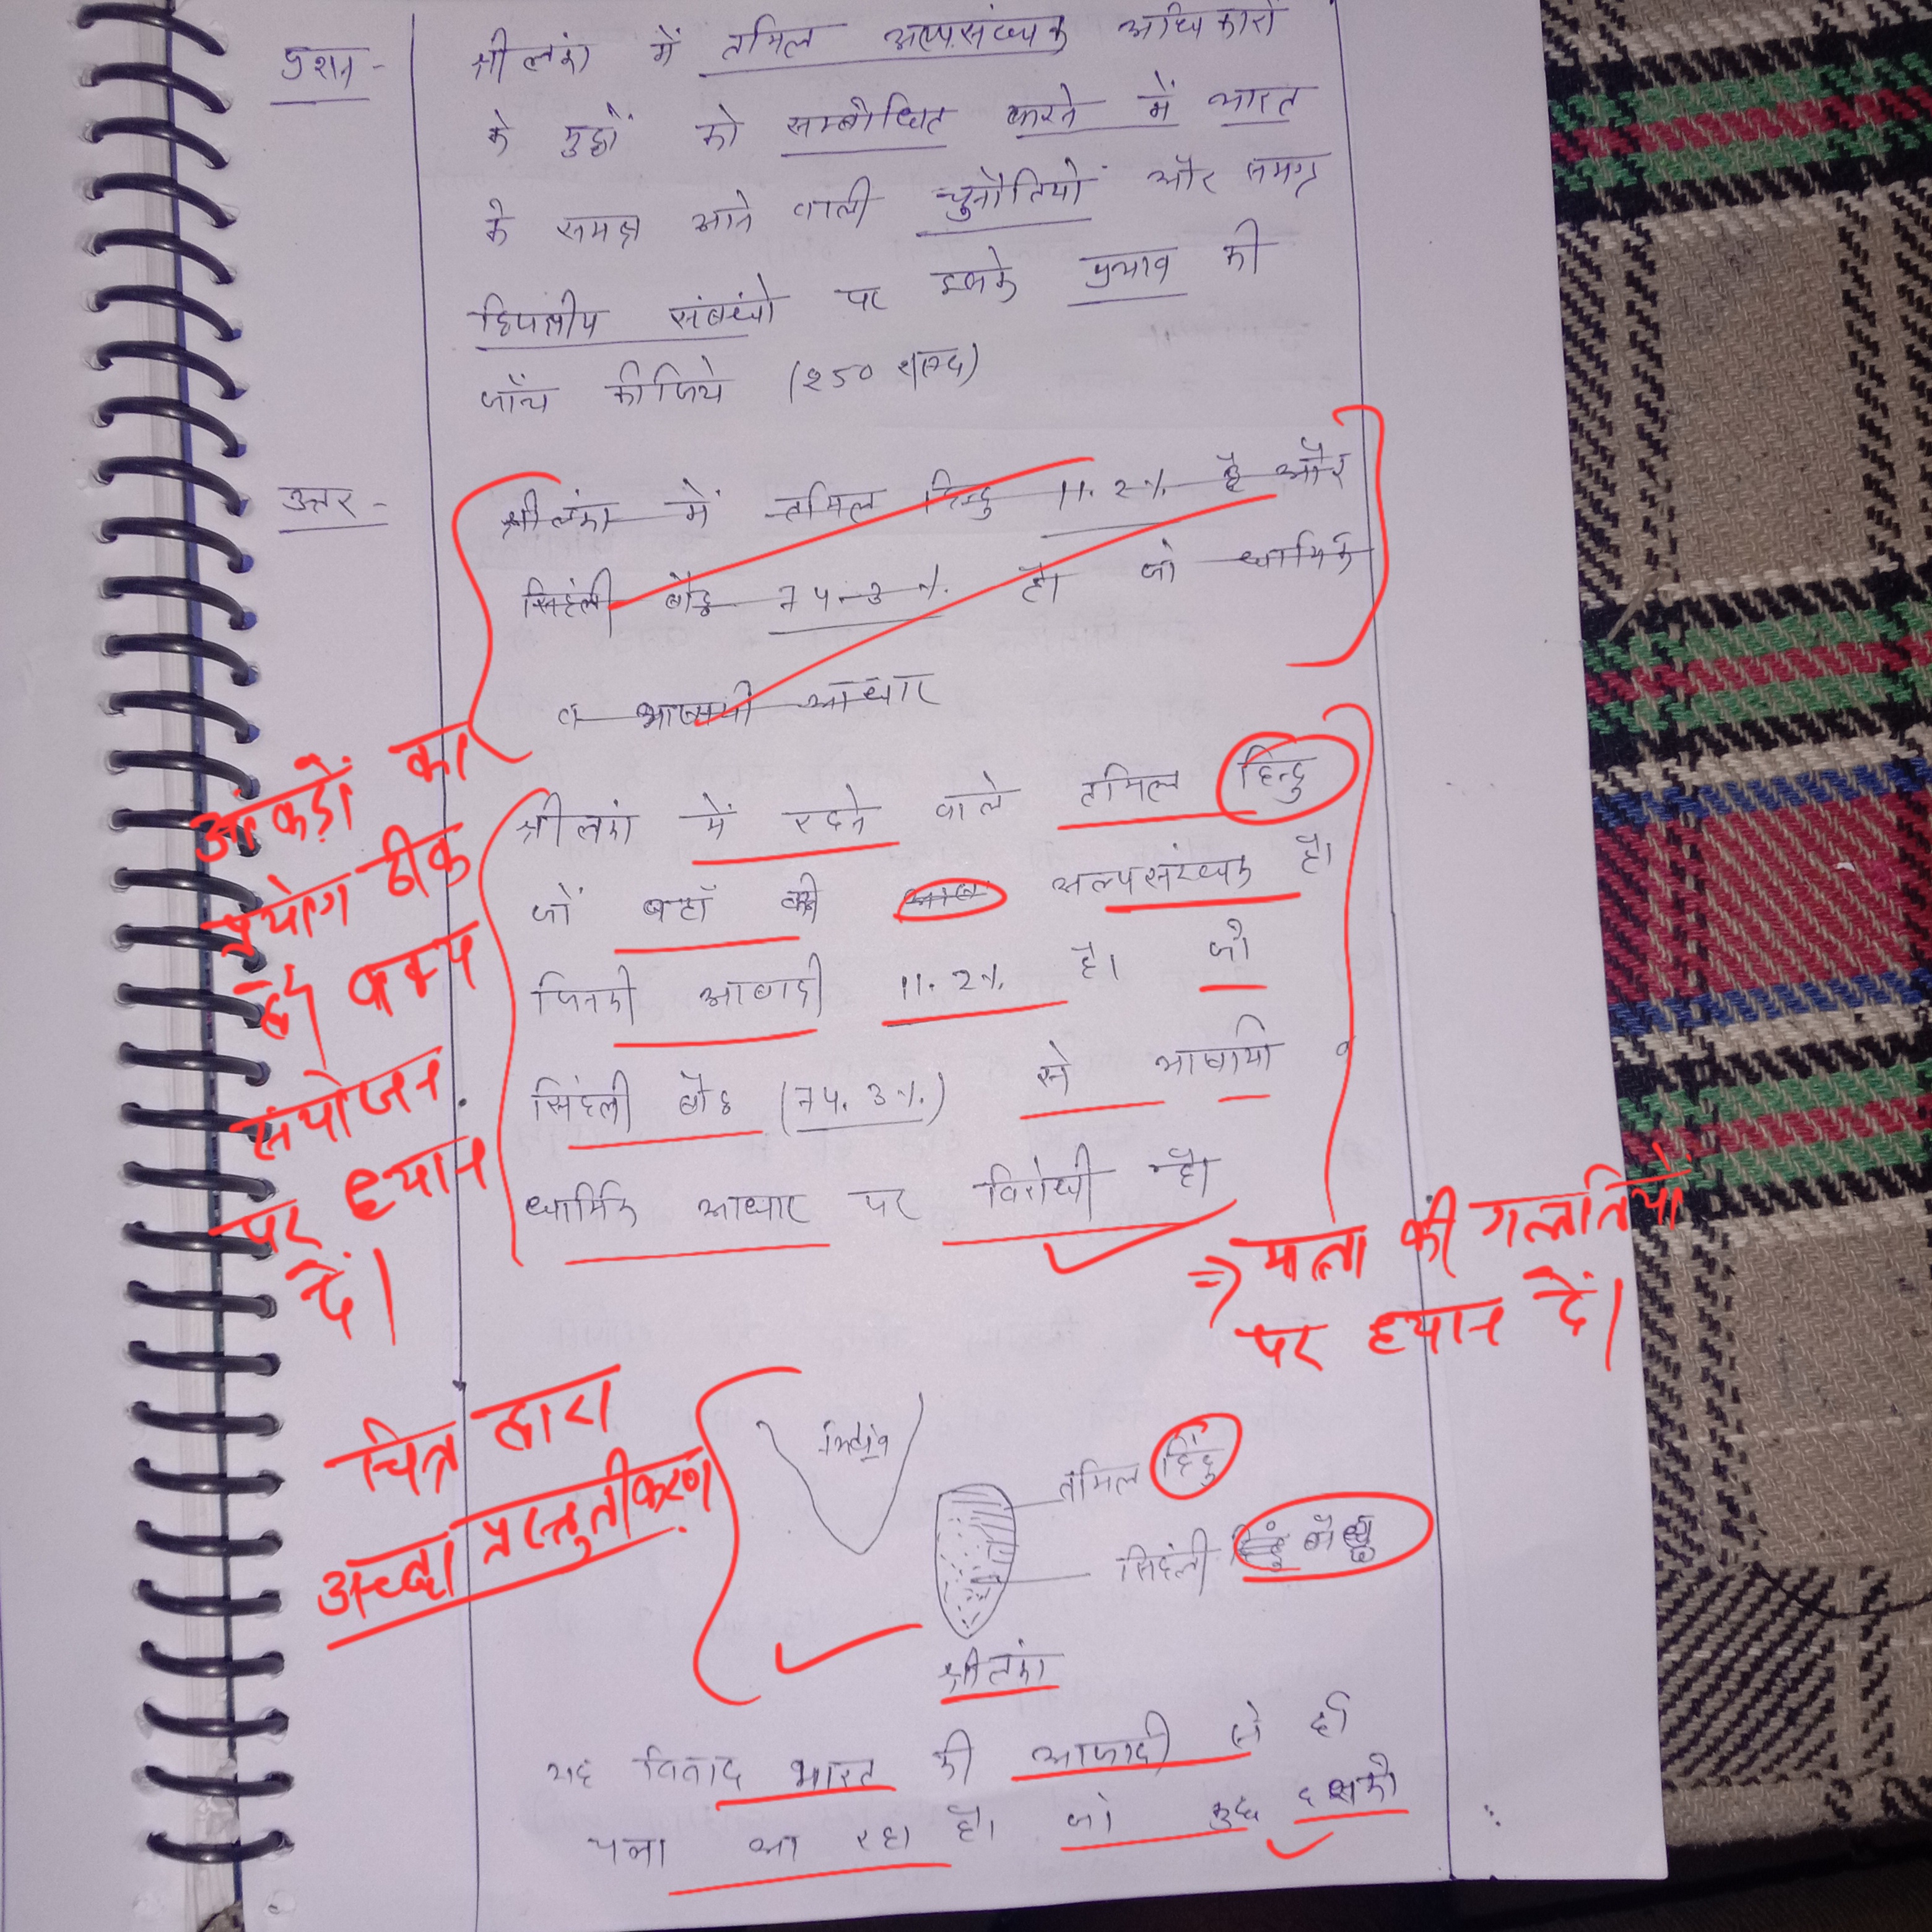 प्रश्न -
श्रीलंका में तमिल अल्पसंख्यक अधिकारों
के मुद्दों को सम्बोधित करने में भारत
के समक्ष आने वाली चुनौतियों और समग्र
द्विपक्षीय संबंधो पर इसके प्रभाव की
जाँच कीजिये (250 शब्द)
उत्तर -
श्रीलंका में तमिल हिन्दु 11.2% है और
सिहंली बौद्ध 74.3%. है। जो धार्मिक
व भाषायी आधार
श्रीलंका में रहने वाले तमिल हिन्दु
जो वहाँ की अल्पसंख्यक है।
जिनकी आबादी 11.2% है। जो
सिंहली बौद्ध (74.3%.) से भाषायी व
धार्मिक आधार पर विरोधी है।
आकड़ों का
प्रयोग ठीक
है, वाक्य
संयोजन
पर ध्यान
दें।
=> मात्रा की गलतियों
पर ध्यान दें।
चित्र द्वारा
अच्छा प्रस्तुतीकरण
तमिल हिंदु
सिहंली बौद्ध
श्रीलंका
यह विवाद भारत की आजादी से ही
चला आ रहा है। जो कुछ दशको